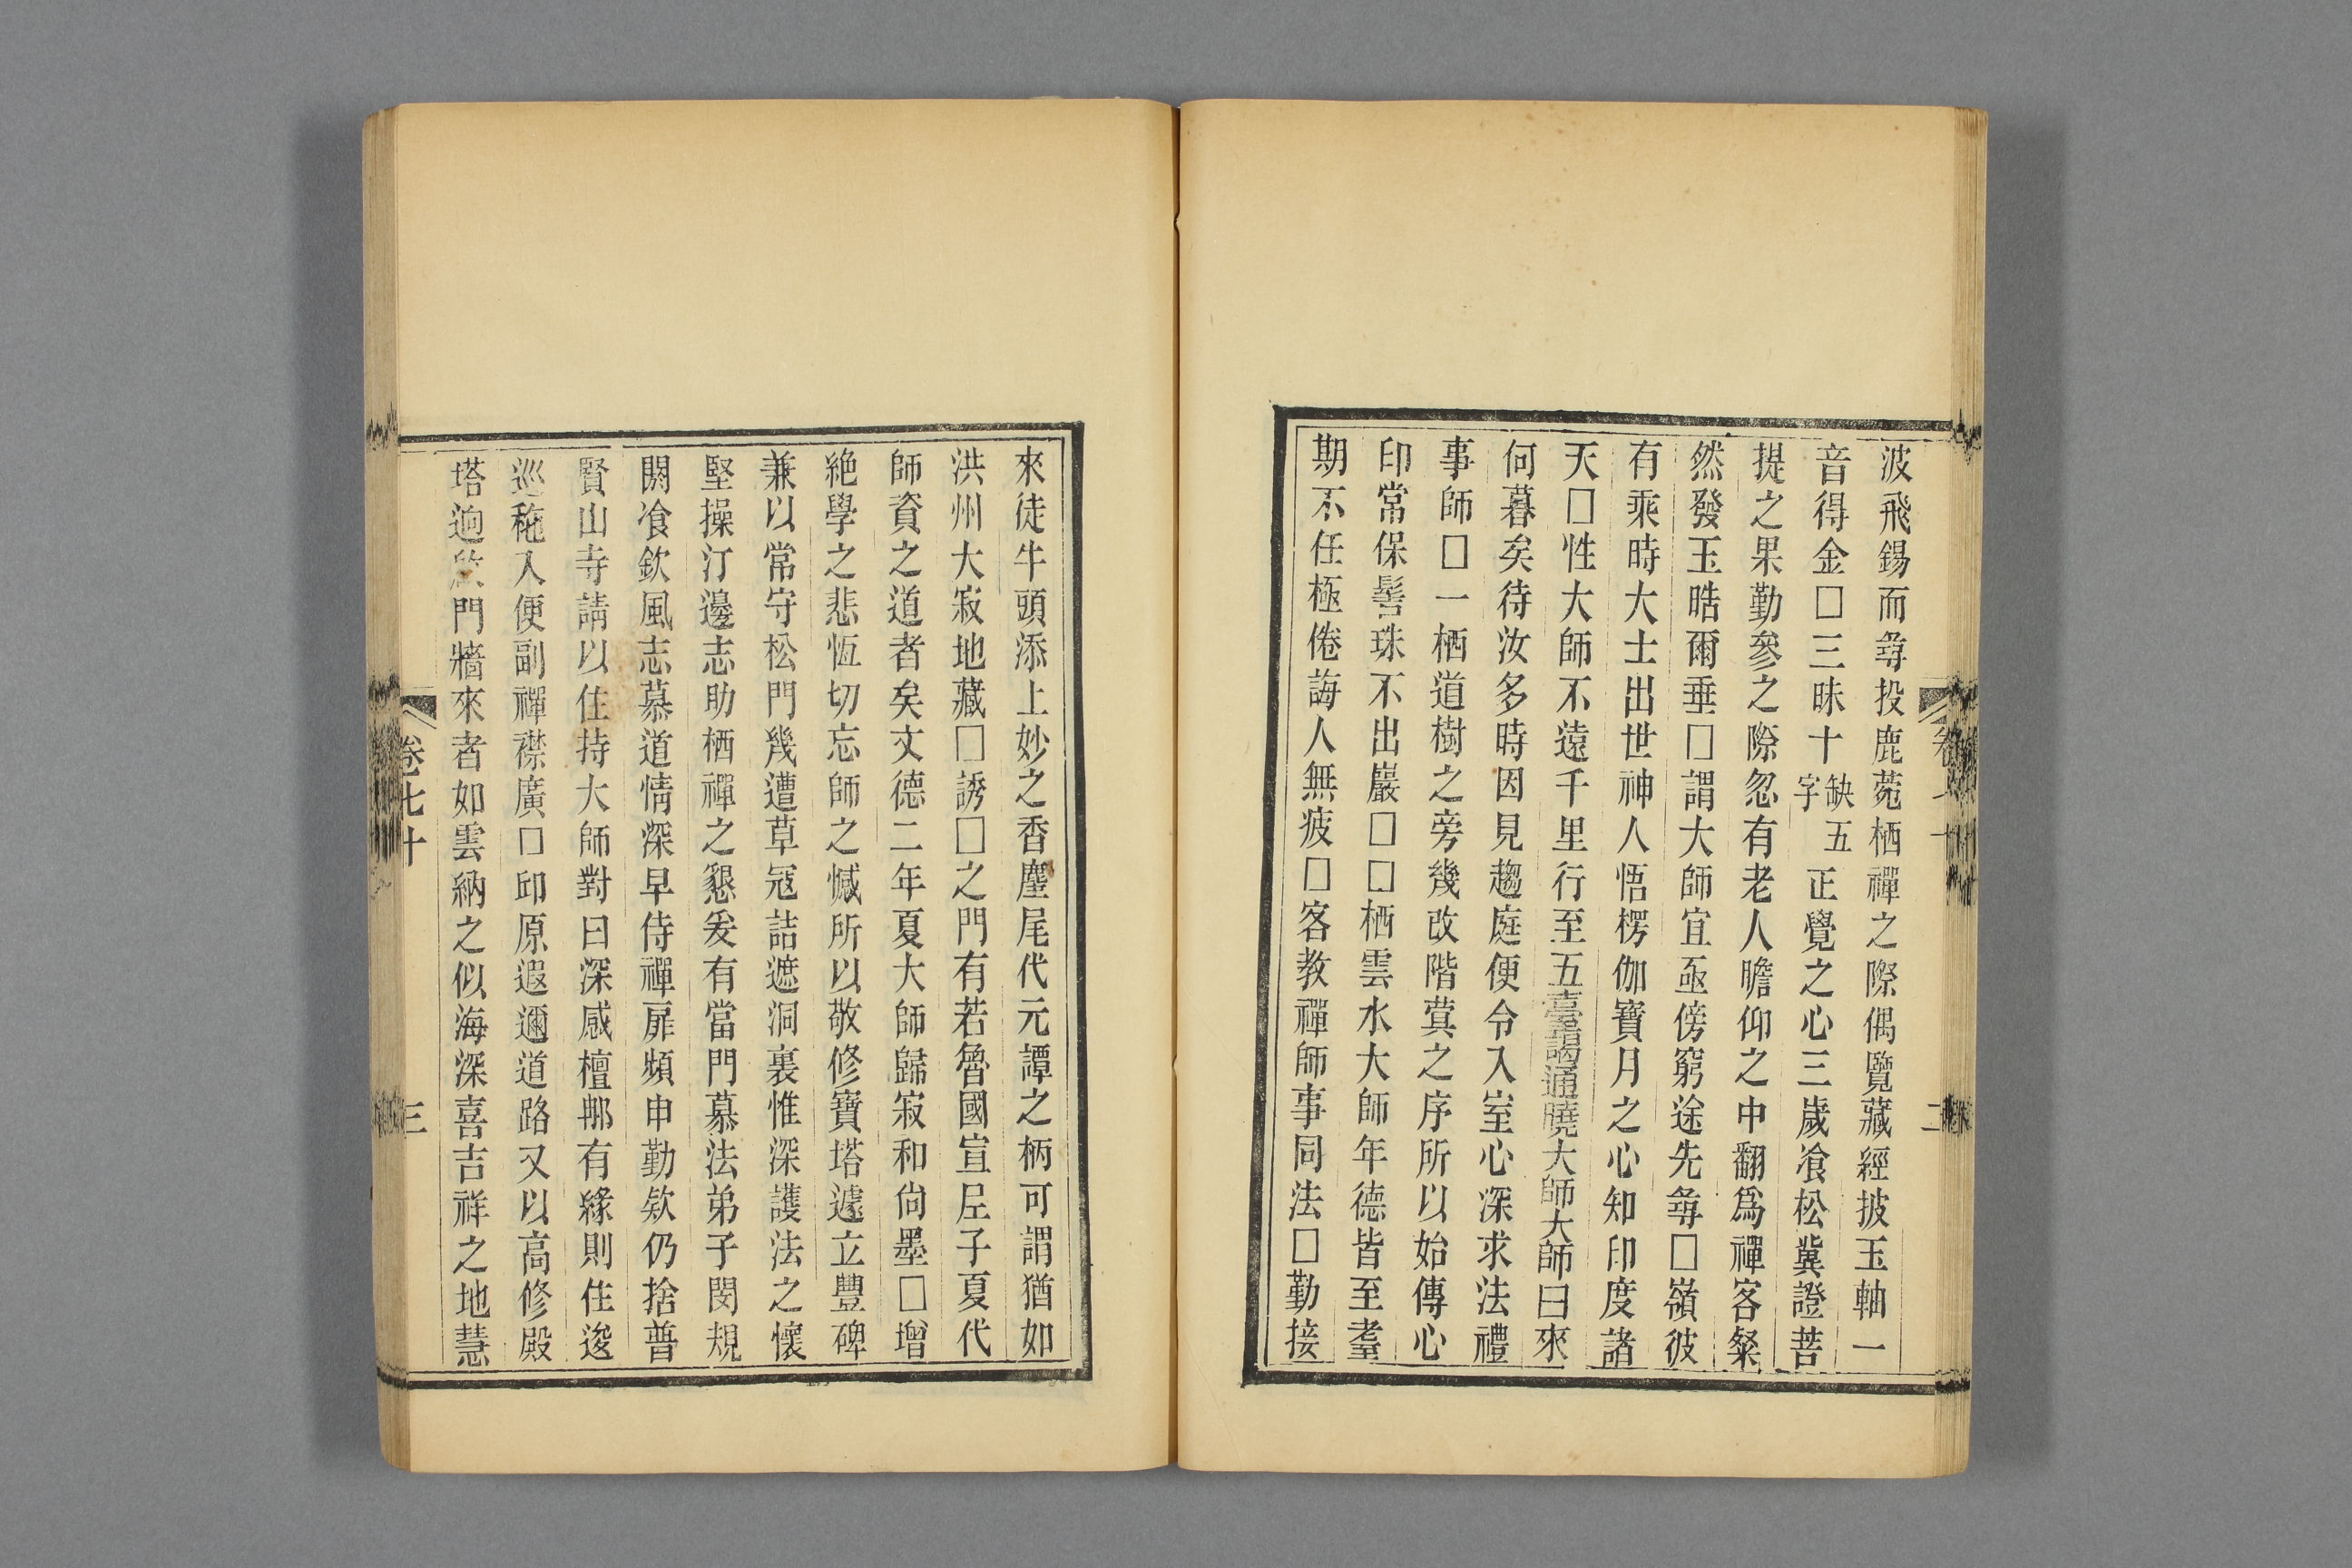 波飛錫而尋投鹿菀栖禪之際偶覽藏經披玉軸一
音得金□三昧十缺五字正覺之心三歲飡松冀證菩
提之果勤參之際忽有老人瞻仰之中翻爲禪客粲
然發玉晧爾垂□謂大師宜亟傍窮途先尋□嶺彼
有乘時大士出世神人悟楞伽寶月之心知印度諸
天□性大師不遠千里行至五臺謁通曉大師大師曰來
何暮矣待汝多時因見趨庭便令入室心深求法禮
事師□一栖道樹之旁幾改階蓂之序所以始傳心
印常保髻珠不出巖□□栖雲水大師年德皆至耋
期不任極倦誨人無疲□客教禪師事同法□勤接
來徒牛頭添上妙之香麈尾代元譚之柄可謂猶如
洪州大寂地藏□誘□之門有若魯國宣尼子夏代
師資之道者矣文德二年夏大師歸寂和尚墨□增
絶學之悲恆切忘師之憾所以敬修寶塔遽立豐碑
兼以常守松門幾遭草冦詰遮洞裏惟深護法之懷
堅操汀邊志助栖禪之懇爰有當門慕法弟子閔規
闕飡欽風志慕道情深早侍禪扉頻申勤欵仍捨普
賢山寺請以住持大師對曰深感檀那有緣則住逡
巡𥘼入便副禪襟廣□邱原遐邇道路又以高修殿
塔逈啟門牆來者如雲納之似海深喜吉祥之地慧
卷七十
三
二